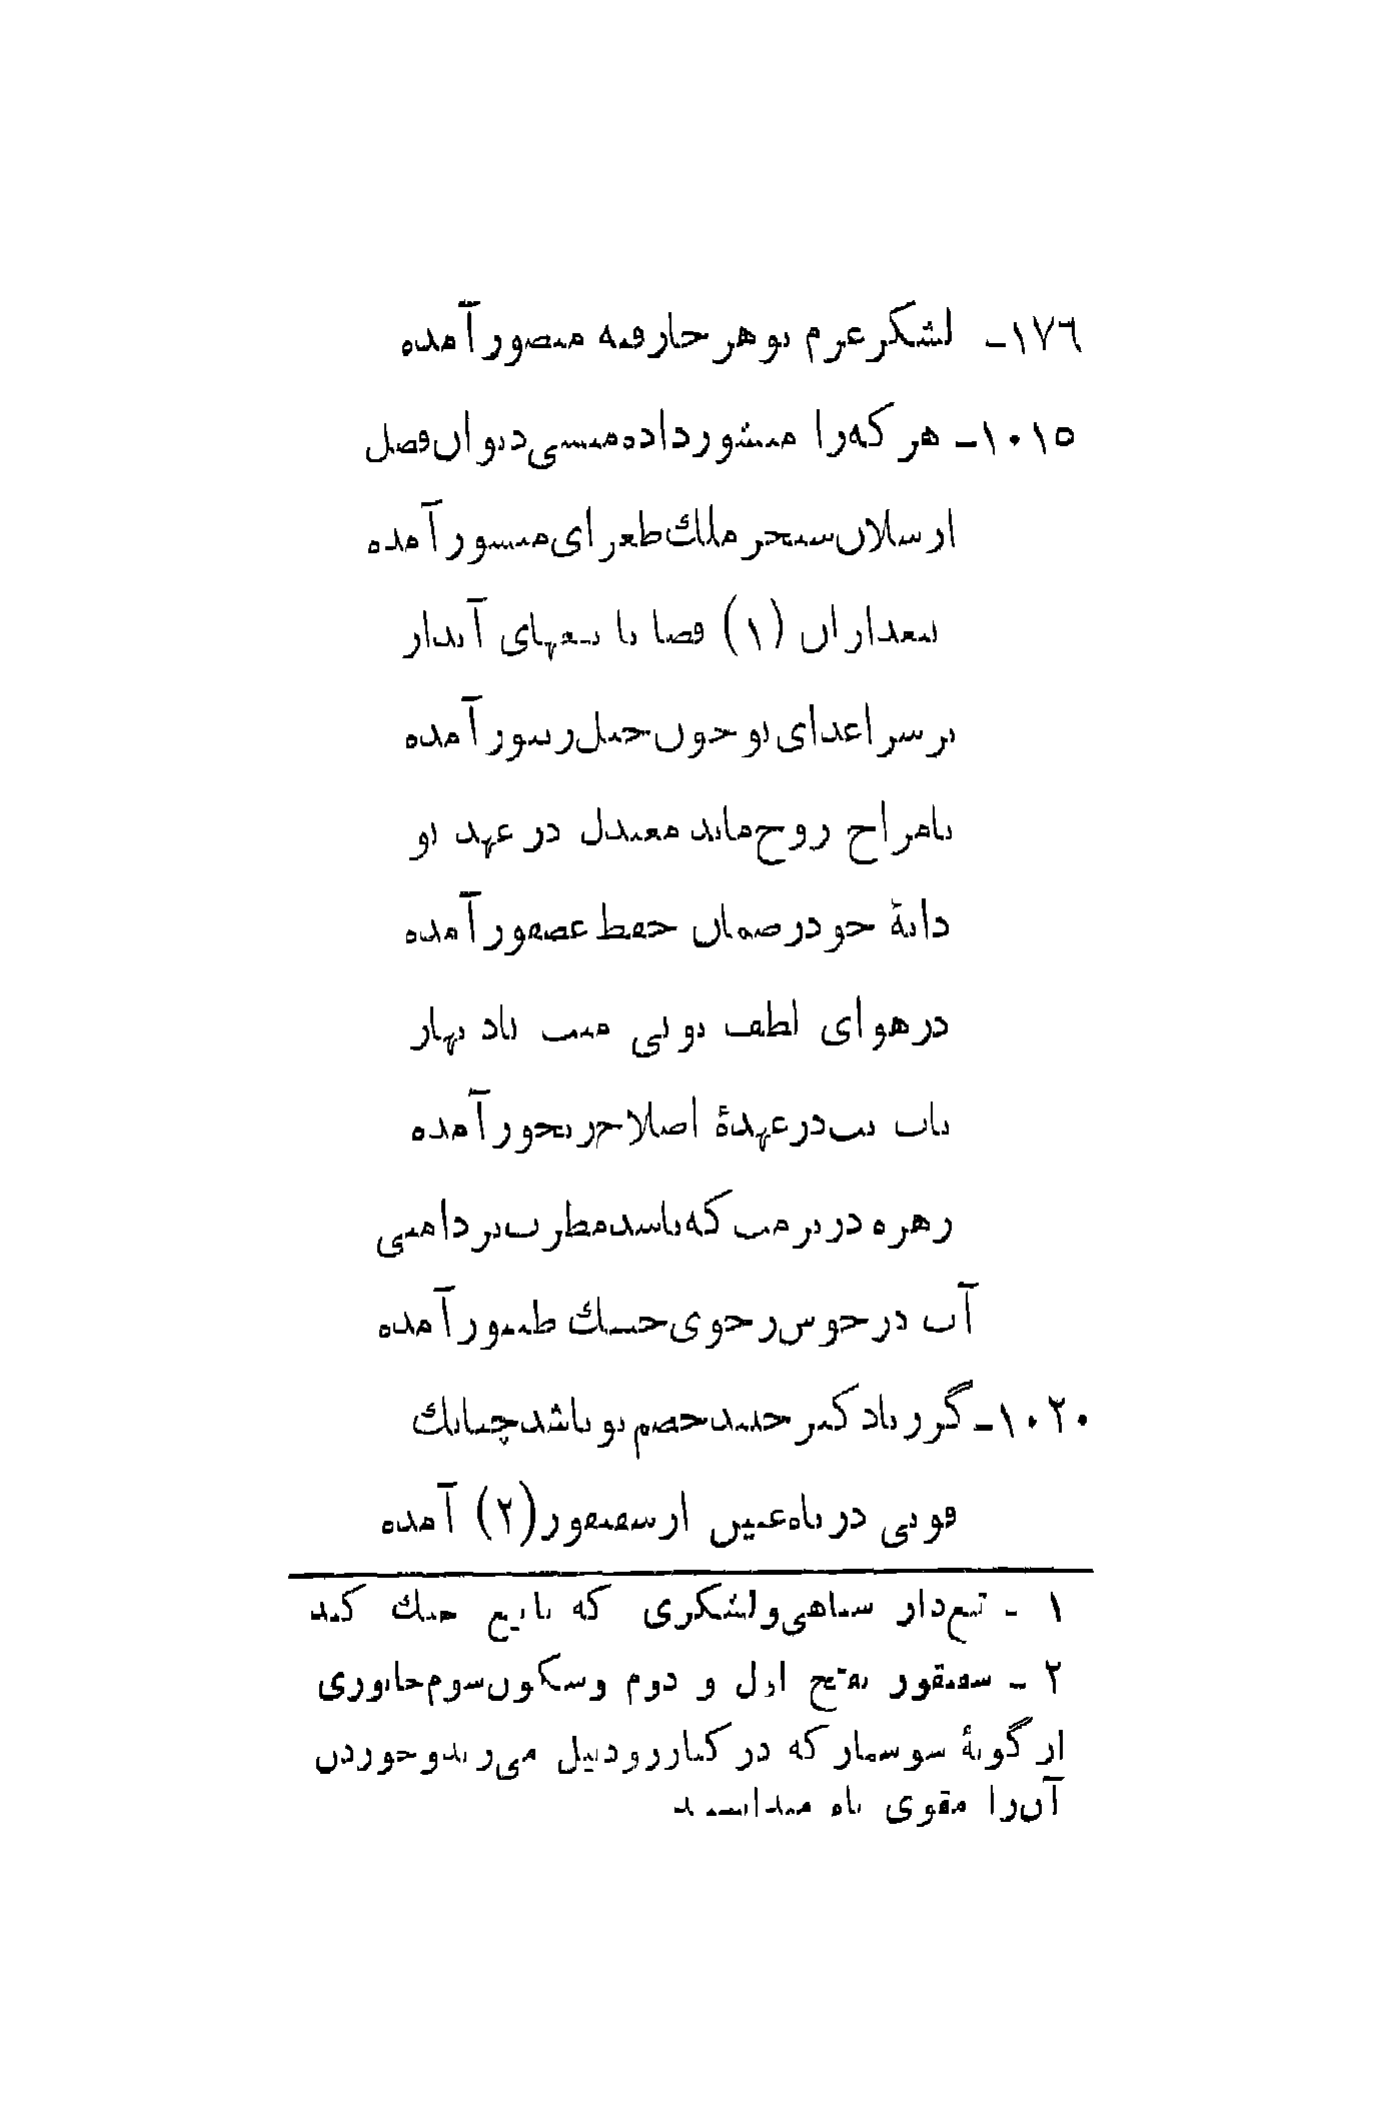 ۱۷۶- لشکر عزم تو هر جا رفته منصور آمده
۱۰۱۵- هر که را منشور داده منشی دیوان فضل
ارسلان سنجر ملک طغرای منشور آمده
تیغداران (۱) قضا با تیغهای آبدار
بر سر اعدای تو چون خیل زنبور آمده
با مزاج روح مانده معتدل در عهد تو
دانهٔ جو در ضمان حفظ عصفور آمده
در هوای لطف تو بی منت باد بهار
باب تب در عهدهٔ اصلاح رنجور آمده
زهره در بزمت که باشد مطرب تر دامنی
آب در جوش ز جوی خشک طنبور آمده
۱۰۲۰- گر ز باد کبر جنبد خصم تو باشد چنانک
قوتی در باه عنین از سقنقور (۲) آمده
۱ - تیغ‌دار سپاهی و لشکری که با تیغ جنگ کند
۲ - سقنقور بفتح اول و دوم و سکون سوم جانوری
از گونهٔ سوسمار که در کنار رود نیل می‌زید و خوردن
آن را مقوی باه میدانستند